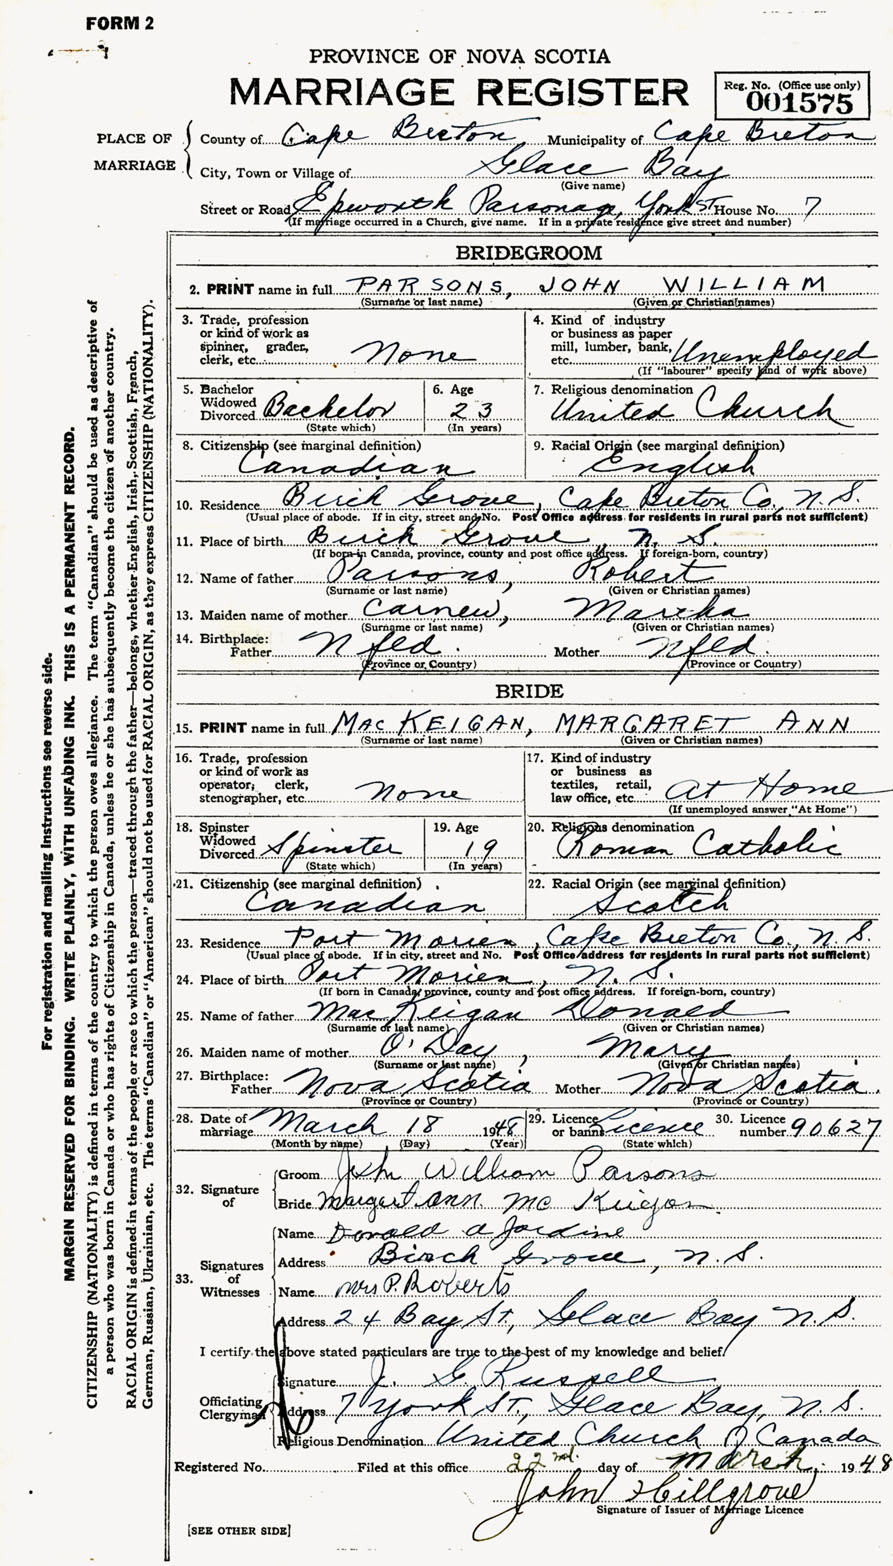 FORM 2
PROVINCE OF NOVA SCOTIA
MARRIAGE REGISTER
Reg. No. (Office use only)
001575
PLACE OF MARRIAGE
County of Cape Breton Municipality of Cape Breton
City, Town or Village of Glace Bay
(Give name)
Street or Road Epworth Parsonage, York St House No. 7
(If marriage occurred in a Church, give name. If in a private residence give street and number)
BRIDEGROOM
2. PRINT name in full PARSONS, JOHN WILLIAM
(Surname or last name) (Given or Christian names)
3. Trade, profession or kind of work as spinner, grader, clerk, etc. None
4. Kind of industry or business as paper mill, lumber, bank, etc. Unemployed
(If "labourer" specify kind of work above)
5. Bachelor Widowed Divorced Bachelor
(State which)
6. Age 23
(In years)
7. Religious denomination
United Church
8. Citizenship (see marginal definition)
Canadian
9. Racial Origin (see marginal definition)
English
10. Residence Birch Grove, Cape Breton Co., N.S.
(Usual place of abode. If in city, street and No. Post Office address for residents in rural parts not sufficient)
11. Place of birth Birch Grove, N.S.
(If born in Canada, province, county and post office address. If foreign-born, country)
12. Name of father Parsons, Robert
(Surname or last name) (Given or Christian names)
13. Maiden name of mother Carnew, Martha
(Surname or last name) (Given or Christian names)
14. Birthplace: Father Nfld. Mother Nfld
(Province or Country) (Province or Country)
BRIDE
15. PRINT name in full MacKEIGAN, MARGARET ANN
(Surname or last name) (Given or Christian names)
16. Trade, profession or kind of work as operator, clerk, stenographer, etc. None
17. Kind of industry or business as textiles, retail, law office, etc. At Home
(If unemployed answer "At Home")
18. Spinster Widowed Divorced Spinster
(State which)
19. Age 19
(In years)
20. Religious denomination
Roman Catholic
21. Citizenship (see marginal definition)
Canadian
22. Racial Origin (see marginal definition)
Scotch
23. Residence Port Morien, Cape Breton Co., N.S.
(Usual place of abode. If in city, street and No. Post Office address for residents in rural parts not sufficient)
24. Place of birth Port Morien, N.S.
(If born in Canada, province, county and post office address. If foreign-born, country)
25. Name of father MacKeigan Donald
(Surname or last name) (Given or Christian names)
26. Maiden name of mother O'Day, Mary
(Surname or last name) (Given or Christian names)
27. Birthplace: Father Nova Scotia Mother Nova Scotia
(Province or Country) (Province or Country)
28. Date of marriage March 18 1948
(Month by name) (Day) (Year)
29. Licence or banns Licence
(State which)
30. Licence number 90627
32. Signature of
Groom John William Parsons
Bride Margert Ann Mc Kiegan
33. Signatures of Witnesses
Name Donald A Jardine
Address Birch Grove, N.S.
Name Mrs P. Roberts
Address 24 Bay St., Glace Bay N.S.
I certify the above stated particulars are true to the best of my knowledge and belief.
Officiating Clergyman
Signature J. G. Russell
Address 7 York St., Glace Bay, N.S.
Religious Denomination United Church of Canada
Registered No. Filed at this office 22nd. day of March 1948
John Hillgrove
Signature of Issuer of Marriage Licence
[SEE OTHER SIDE]
For registration and mailing instructions see reverse side.
MARGIN RESERVED FOR BINDING. WRITE PLAINLY, WITH UNFADING INK. THIS IS A PERMANENT RECORD.
CITIZENSHIP (NATIONALITY) is defined in terms of the country to which the person owes allegiance. The term "Canadian" should be used as descriptive of
a person who was born in Canada or who has rights of Citizenship in Canada, unless he or she has subsequently become the citizen of another country.
RACIAL ORIGIN is defined in terms of the people or race to which the person—traced through the father—belongs, whether English, Irish, Scottish, French,
German, Russian, Ukrainian, etc. The terms "Canadian" or "American" should not be used for RACIAL ORIGIN, as they express CITIZENSHIP (NATIONALITY).